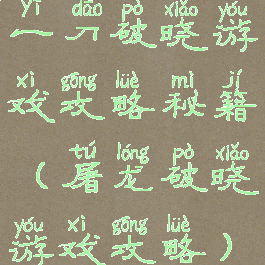 yī dāo pò xiǎo yóu
一刀破晓游
xì gōng lüè mì jí
戏攻略秘籍
tú lóng pò xiǎo
(屠龙破晓
yóu xì gōng lüè
游戏攻略)